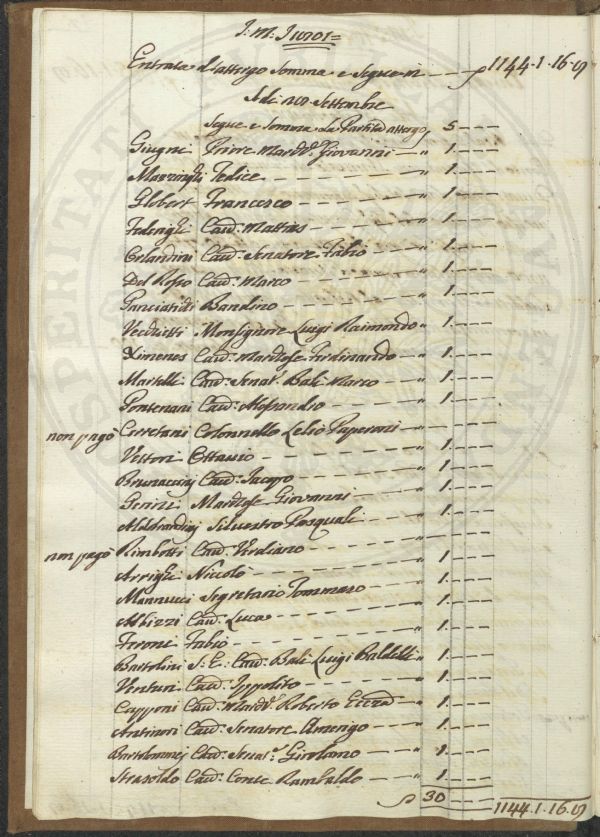 Entrata d'attergo Somma e Segue in — — 1144.1.16.9
A dì 28 Settembre
Segue e Somma La Partita attergo, 5 — — —
Giugni Priore March.e Giovanni — — „ 1. — — —
Marzinghi Felice — — — „ 1. — — —
Globert Francesco — — — „ 1. — — —
Federighi Cav.r Mattias — — — „ 1. — — —
Orlandini Cav.r Senatore Fabio — — „ 1. — — —
Del Rosso Cav.r Marco — — — „ 1. — — —
Panciatichi Bandino — — — „ 1. — — —
Vecchietti Monsignore Luigi Raimondo „ 1. — — —
Ximenes Cav.r Marchese Ferdinando — — „ 1. — — —
Martelli Cav.r Senat.r Balì Marco — — „ 1. — — —
Pontenani Cav.r Alessandro — — — „ 1. — — —
non pagò Cerretani Colonnello Lelio Paperoni — — „ — — — —
Vettori Ottavio — — — „ 1. — — —
Brunaccini Cav.r Jacopo — — — „ 1. — — —
Gerini Marchese Giovanni — — — „ 1. — — —
Aldobrandini Silvestro Pasquali — — „ 1. — — —
non pagò Rimbotti Cav.r Verdiano — — — — — —
Arrighi Niccolò — — — „ 1. — — —
Mannucci Segretario Tommaso — — „ 1. — — —
Albizzi Cav.r Luca — — — „ 1. — — —
Feroni Fabio — — — „ 1. — — —
Bartolini S: E: Cav.r Balì Luigi Baldelli „ 1. — — —
Venturi Cav.r Ippolito — — — „ 1. — — —
Capponi Cav.r March.e Roberto — — „ 1. — — —
Antinori Cav.r Senatore Amerigo — — „ 1. — — —
Bartolommei Cav.r Senat.e Girolamo — — „ 1. — — —
Strasoldo Cav.r Conte Rambaldo — — „ 1. — — —
30 — — — 1144.1.16.9